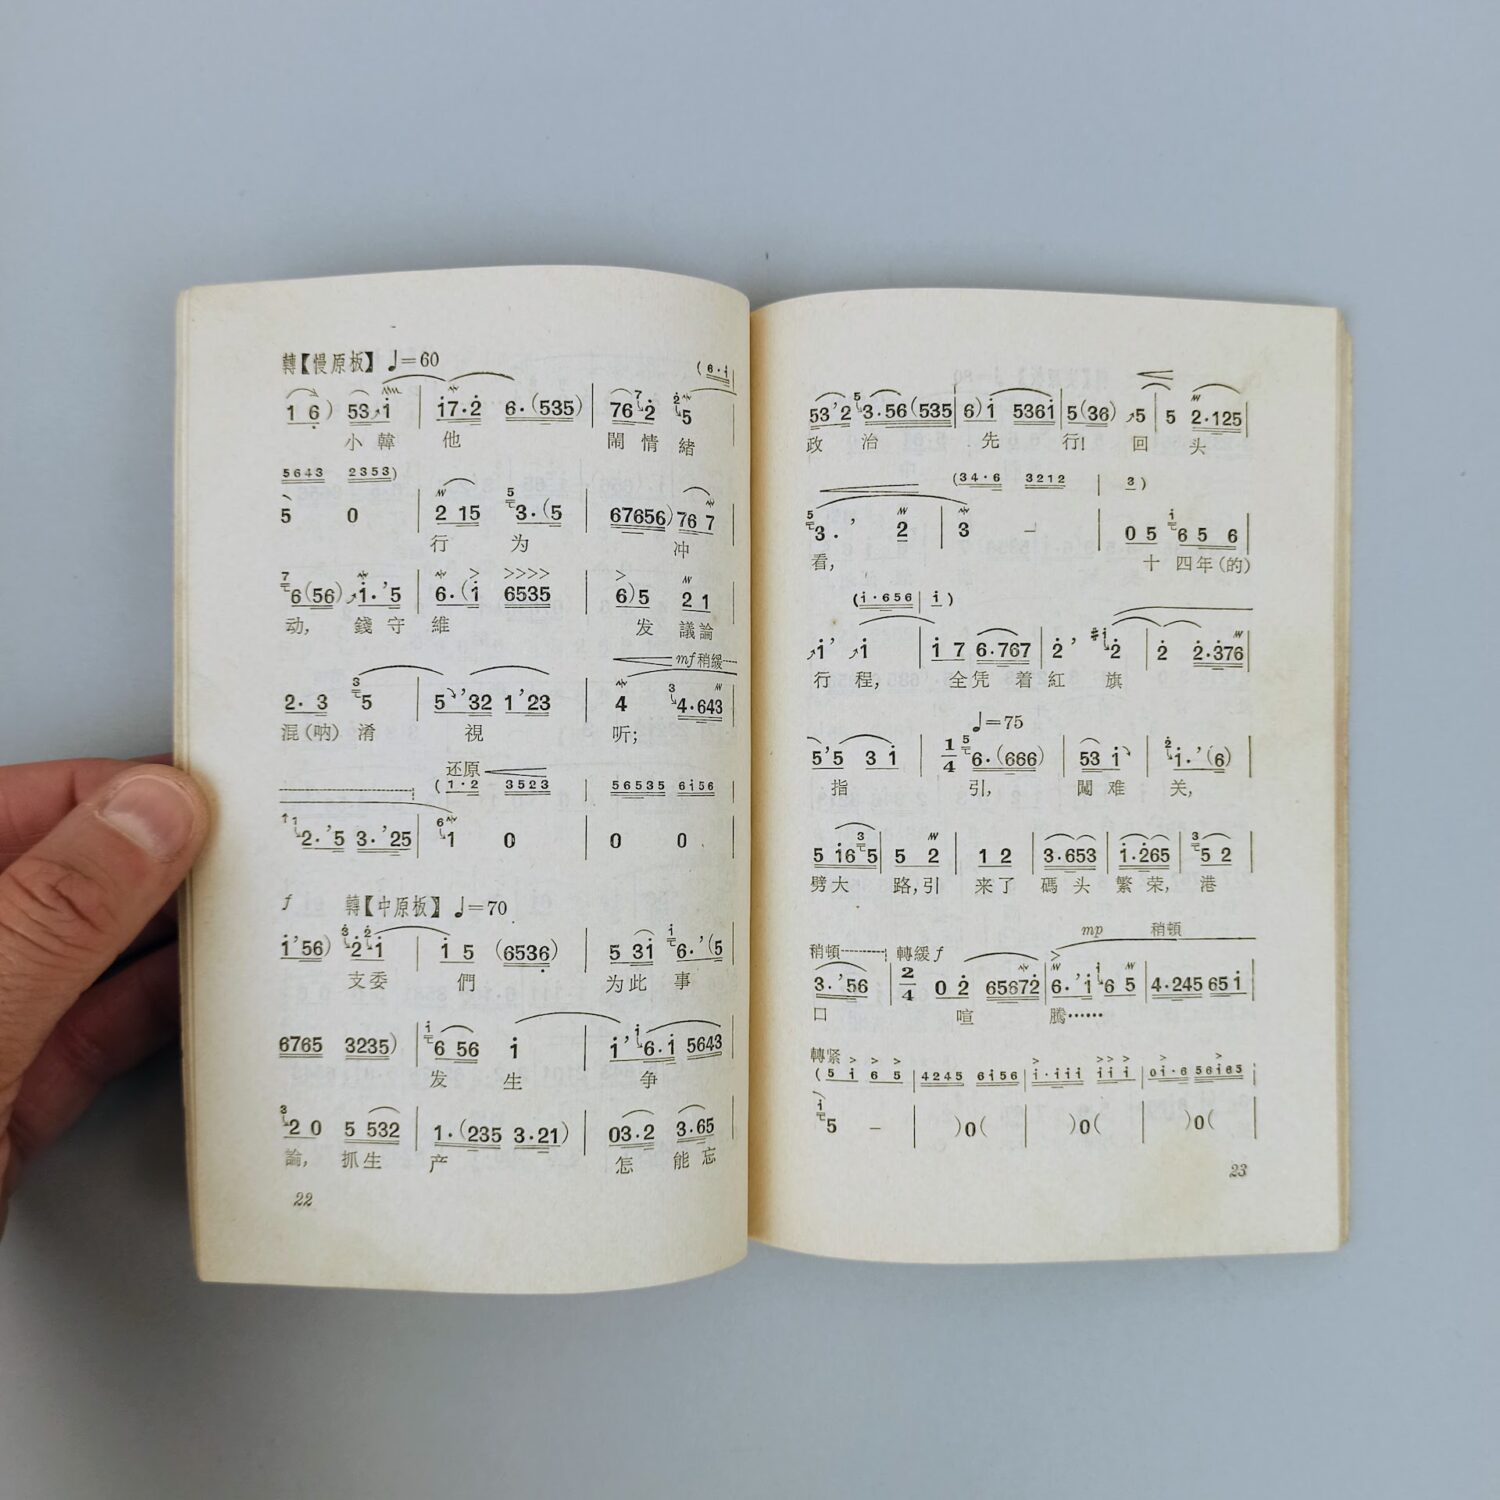 轉【慢原板】 ♩=60
(6·i
1 6) 53 i | i7·2 6·(535) | 76 2 5
小 韓 他 鬧 情 緒
5643 2353)
5 0 | 2 15 3·(5 | 67656) 76 7
行 为 冲
6(56) i·'5 | 6·(i 6535 | 6)5 2 1
动, 錢 守 維 发 議 論
mf 稍緩
2·3 5 | 5'32 1'23 | 4 4·643
混(呐) 淆 視 听;
还原
(1·2 3523 | 56535 6i56
2·'5 3·'25 | 1 0 | 0 0
f 轉【中原板】 ♩=70
i'56) 2·i | i 5 (6536) | 5 3i 6·'(5
支委 們 为此 事
6765 3235) | 6 56 i | i'6·i 5643
发 生 争
2 0 5 532 | 1·(235 3·21) | 03·2 3·65
論, 抓生 产 怎 能 忘
22
53'2 3·56(535 | 6)i 536i | 5(36) 5 | 5 2·125
政 治 先 行! 回 头
(34·6 3212 | 3)
3·' 2 | 3 – | 0 5 6 5 6
看, 十 四年(的)
(i·656 | i)
i' i | i 7 6·767 | 2' 2 | 2 2·376
行 程, 全凭 着 紅 旗
♩=75
5'5 3 i | 1/4 6·(666) | 53 i | i·'(6)
指 引, 闖 难 关,
5 i6 5 | 5 2 | 1 2 | 3·653 | i·265 | 5 2
劈大 路,引 来了 碼头 繁荣, 港
稍頓 轉緩 f mp 稍頓
3·'56 | 2/4 0 2 65672 | 6·'i 6 5 | 4·245 65i
口 喧 腾……
轉紧
(5 i 6 5 | 4245 6i56 | i·iii iii | 0i·6 56i65
5 – | )0( | )0( | )0(
23